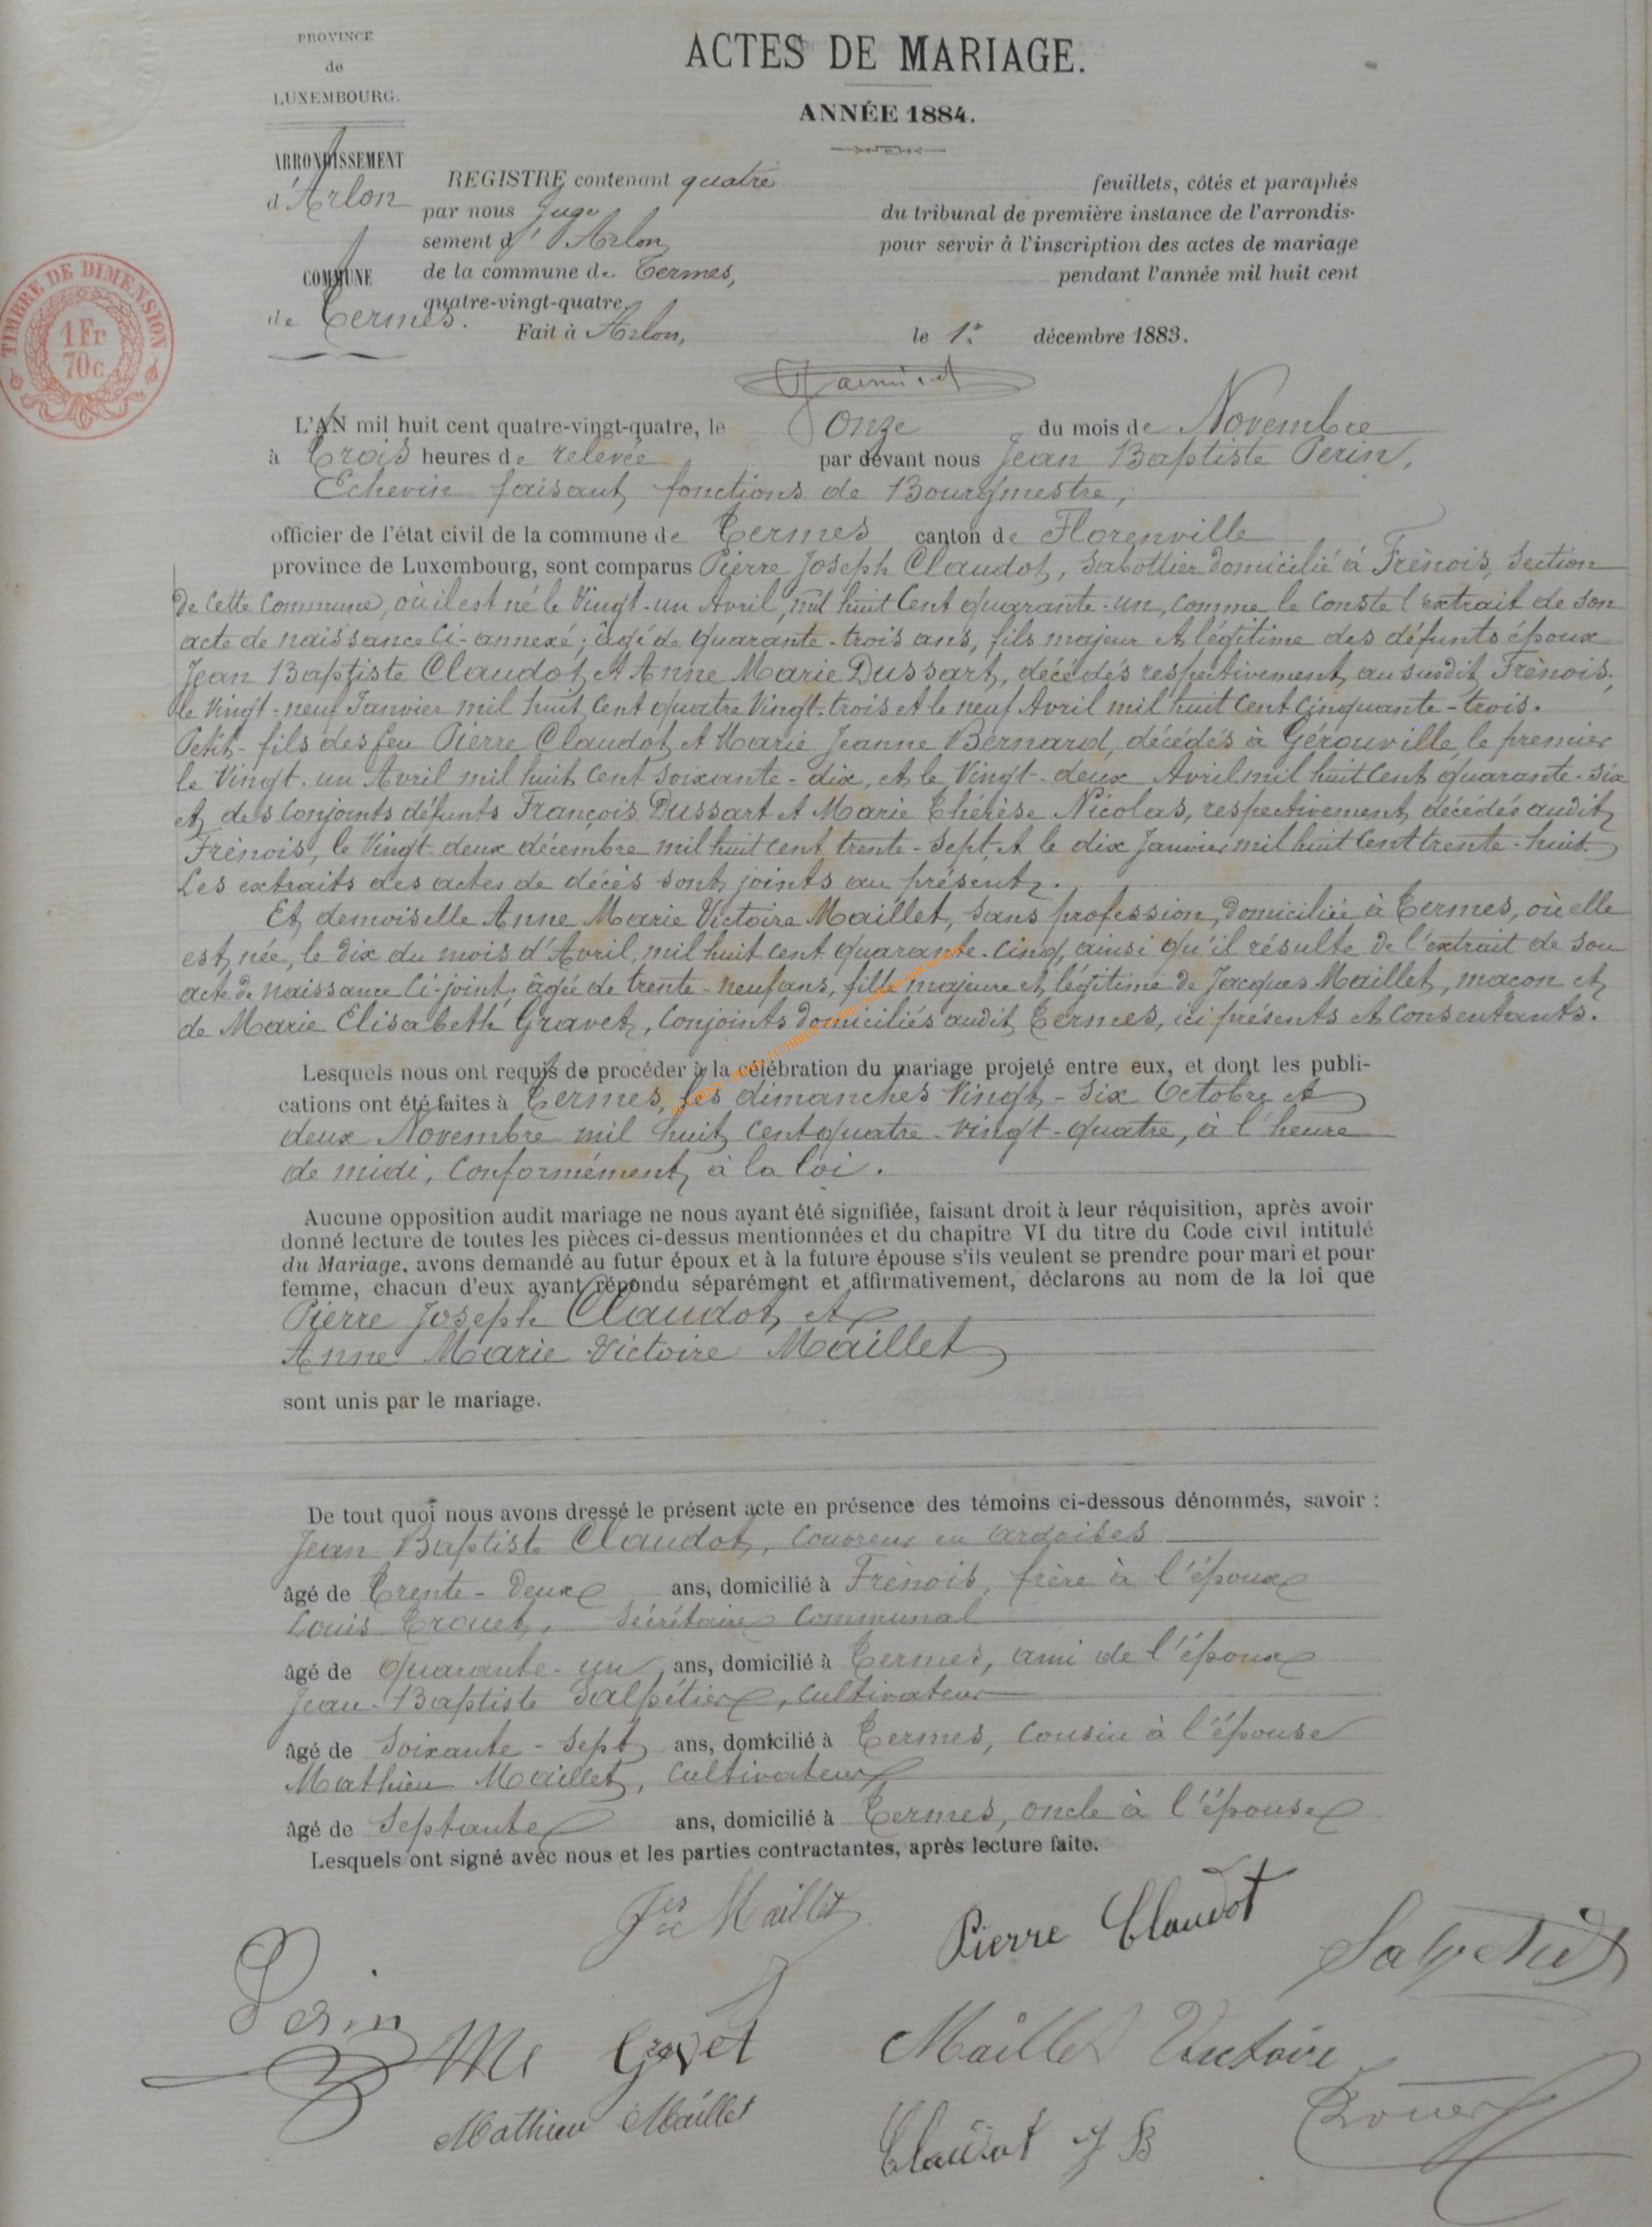 PROVINCE
de
LUXEMBOURG.
ACTES DE MARIAGE.
ANNÉE 1884.
ARRONDISSEMENT
d'Arlon
COMMUNE
de Termes.
TIMBRE DE DIMENSION
1 Fr
70 c
REGISTRE contenant quatre feuillets, côtés et paraphés
par nous Juge du tribunal de première instance de l'arrondis-
sement d'Arlon, pour servir à l'inscription des actes de mariage
de la commune de Termes, pendant l'année mil huit cent
quatre-vingt-quatre.
Fait à Arlon, le 1er décembre 1883.
L'AN mil huit cent quatre-vingt-quatre, le onze du mois de Novembre
à trois heures de relevée par devant nous Jean Baptiste Perin,
Echevin faisant fonctions de Bourgmestre,
officier de l'état civil de la commune de Termes canton de Florenville
province de Luxembourg, sont comparus Pierre Joseph Claudot, sabottier domicilié à Frènois, section
de cette commune, où il est né le vingt-un Avril, mil huit cent quarante-un, comme le conste l'extrait de son
acte de naissance ci-annexé; âgé de quarante-trois ans, fils majeur et légitime des défunts époux
Jean Baptiste Claudot et Anne Marie Dussart, décédés respectivement au susdit Frènois,
le vingt-neuf Janvier mil huit cent quatre vingt-trois et le neuf Avril mil huit cent cinquante-trois.
Petit-fils des feu Pierre Claudot et Marie Jeanne Bernard, décédés à Gérouville, le premier
le vingt-un Avril mil huit cent soixante-dix, et le vingt-deux Avril mil huit cent quarante-six
et des conjoints défunts François Dussart et Marie Thérèse Nicolas, respectivement décédés audit
Frènois, le vingt-deux décembre mil huit cent trente-sept, et le dix Janvier mil huit cent trente-huit.
Les extraits des actes de décès sont joints au présent.
Et, demoiselle Anne Marie Victoire Maillet, sans profession, domiciliée à Termes, où elle
est née, le dix du mois d'Avril, mil huit cent quarante-cinq, ainsi qu'il résulte de l'extrait de son
acte de naissance ci-joint, âgée de trente-neuf ans, fille majeure et légitime de Jacques Maillet, maçon et
de Marie Elisabeth Gravet, conjoints domiciliés audit Termes, ici présents et consentants.
Lesquels nous ont requis de procéder à la célébration du mariage projeté entre eux, et dont les publi-
cations ont été faites à Termes, les dimanches vingt-six Octobre et
deux Novembre mil huit cent quatre-vingt-quatre, à l'heure
de midi, conformément à la loi.
Aucune opposition audit mariage ne nous ayant été signifiée, faisant droit à leur réquisition, après avoir
donné lecture de toutes les pièces ci-dessus mentionnées et du chapitre VI du titre du Code civil intitulé
du Mariage, avons demandé au futur époux et à la future épouse s'ils veulent se prendre pour mari et pour
femme, chacun d'eux ayant répondu séparément et affirmativement, déclarons au nom de la loi que
Pierre Joseph Claudot, et
Anne Marie Victoire Maillet
sont unis par le mariage.
De tout quoi nous avons dressé le présent acte en présence des témoins ci-dessous dénommés, savoir :
Jean Baptiste Claudot, couvreur en ardoises
âgé de trente-deux ans, domicilié à Frènois, frère à l'époux
Louis Trouet, Sécrétaire Communal
âgé de quarante-un ans, domicilié à Termes, ami de l'époux
Jean-Baptiste Salpétier, cultivateur
âgé de soixante-sept ans, domicilié à Termes, cousin à l'épouse
Mathieu Maillet, cultivateur
âgé de septante ans, domicilié à Termes, oncle à l'épouse
Lesquels ont signé avec nous et les parties contractantes, après lecture faite.
Maillet
Pierre Claudot
Perin
ME Gravet
Maillet Victoire
Mathieu Maillet
Claudot J B
Trouet